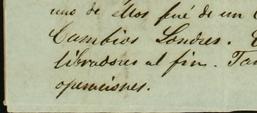 uno de ellos fué de un
Cambios Londres.
libradores al fin. Tan
operaciones.